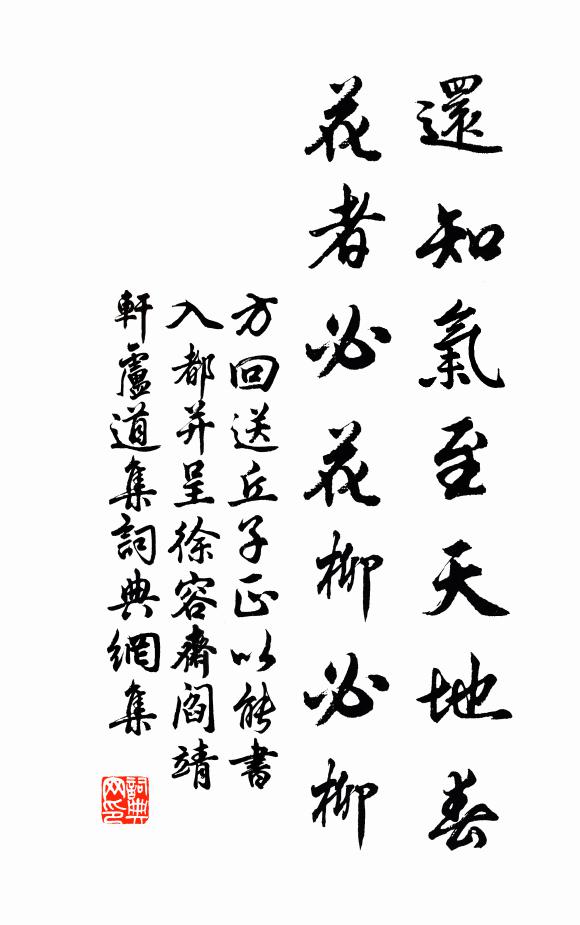 還知氣至天地春
花者必花柳必柳
方回送丘子正以能書
入都并呈徐容齋閻靖
軒盧道集詞典網集
詞典网印